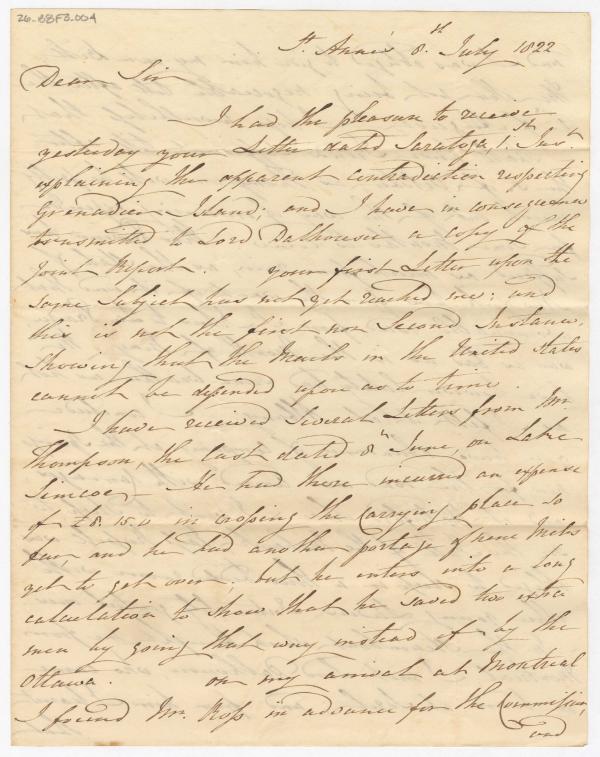 26-BBF3.004
St. Anne's 8.th July 1822
Dear Sir
I had the pleasure to receive
yesterday your Letter dated Saratoga, 1.st Inst.
explaining the apparent contradiction respecting
Grenadier Island; and I have in consequence
transmitted to Lord Dalhousie a copy of the
Joint Report. Your first Letter upon the
same Subject has not yet reached me; and
this is not the first nor Second Instance,
showing that the Mails in the United States
cannot be depended upon as to time.
I have received Several Letters from Mr.
Thompson, the last dated 8th June, on Lake
Simcoe, He had there incurred an expense
of £8.15.0 in crossing the Carrying place so
far, and he had another portage of nine Miles
yet to get over; but he enters into a long
calculation to show that he saved two extra
men by going that way instead of by the
Ottawa. On my arrival at Montreal
I found Mr. Ross in advance for the Commission,
and